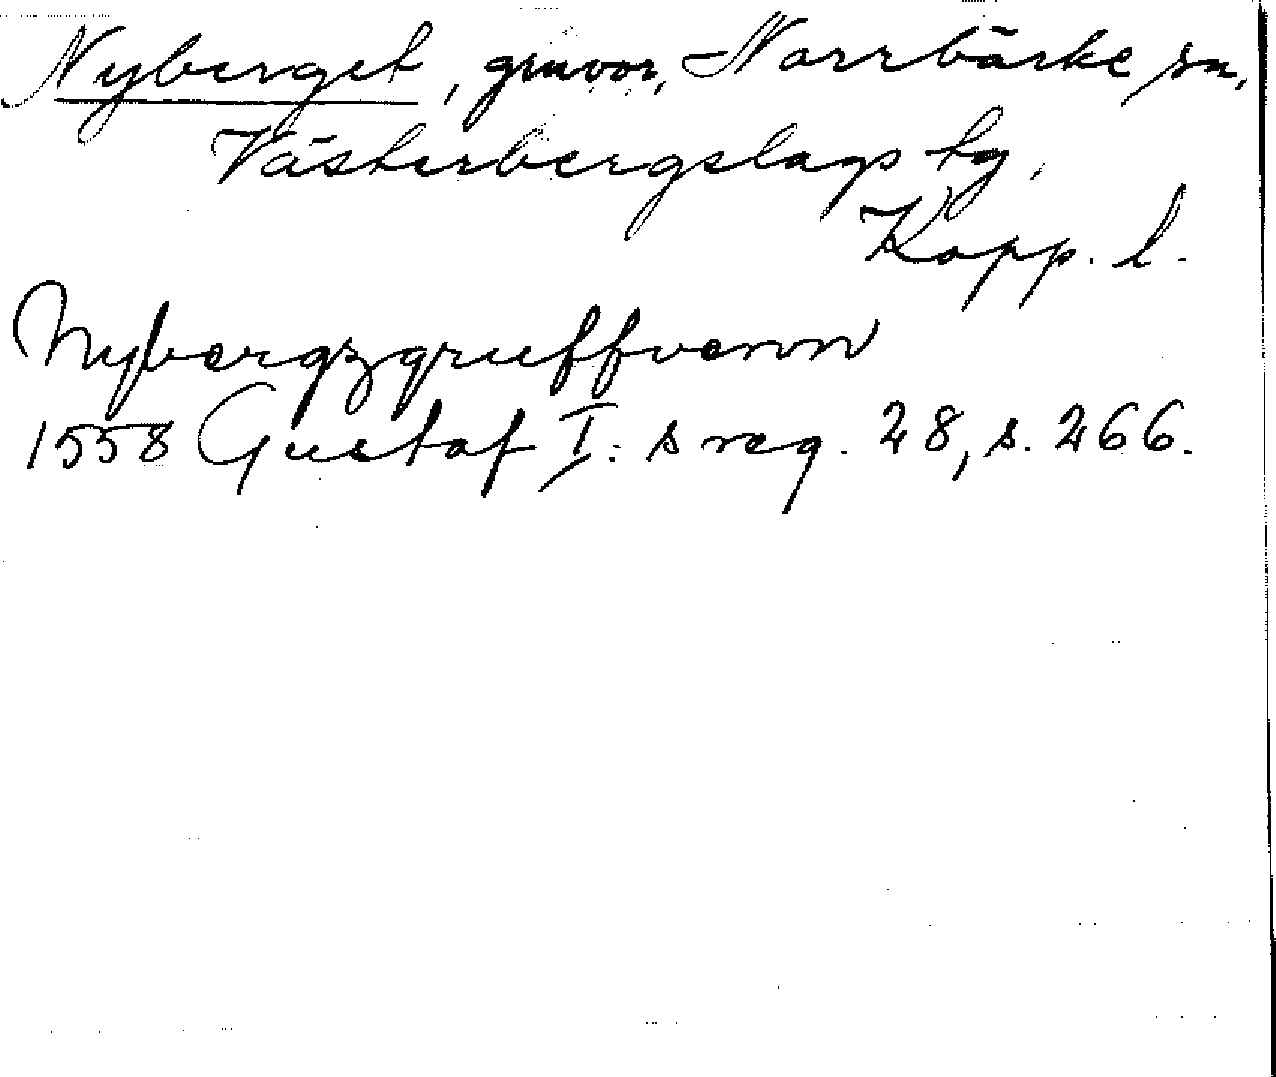 Nyberget, gruvor, Norrbärke sn,
Västerbergslags tg.
Kopp. l.
Nybergzgruffvenn
1558 Gustaf I:s reg. 28, s. 266.